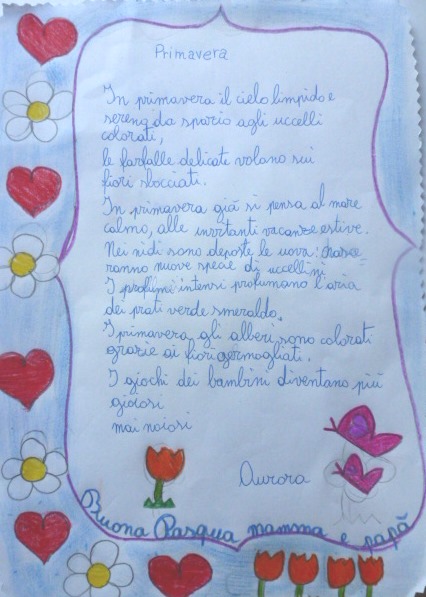 Primavera
In primavera il cielo limpido e
sereno da spazio agli uccelli
colorati,
le farfalle delicate volano sui
fiori sbocciati.
In primavera già si pensa al mare
calmo, alle invitanti vacanze estive.
Nei nidi sono deposte le uova: nasce=
ranno nuove specie di uccellini.
I profumi intensi profumano l'aria
dei prati verde smeraldo.
I primavera gli alberi sono colorati
grazie ai fiori germogliati.
I giochi dei bambini diventano più
gioiosi
mai noiosi
Aurora
Buona Pasqua mamma e papà